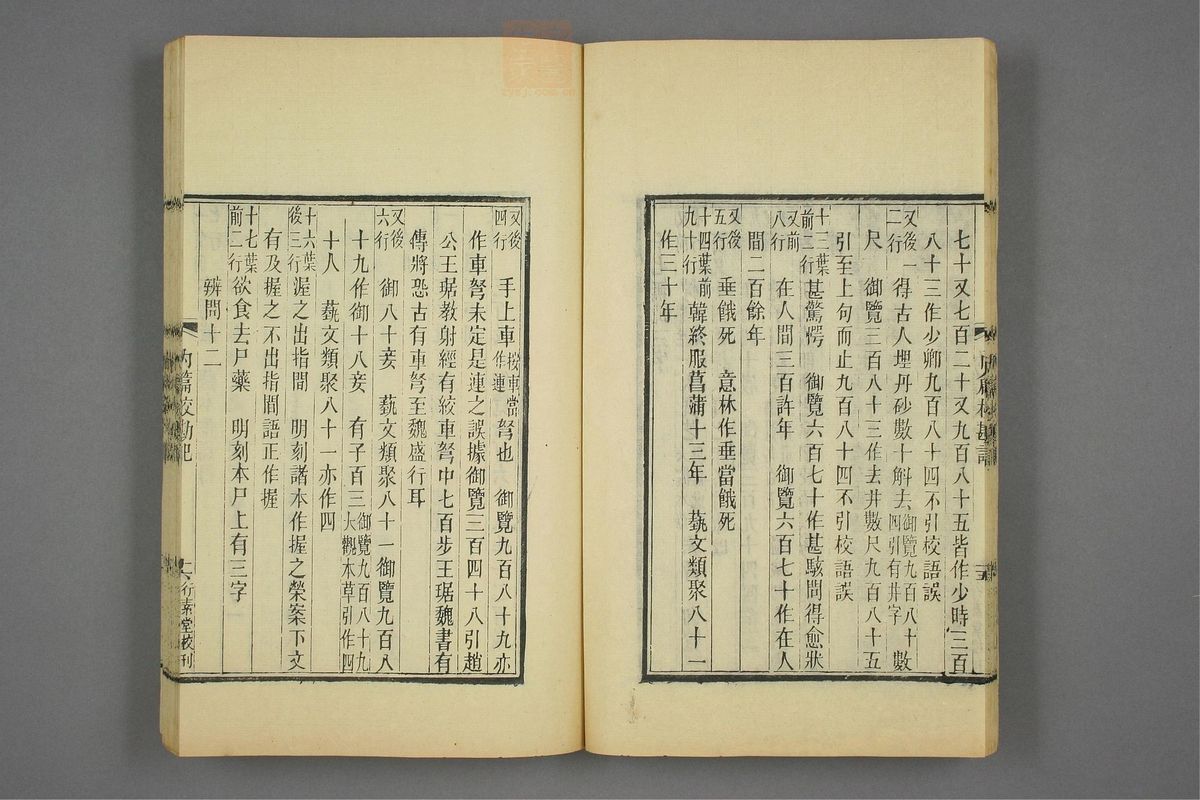 七十又七百二十又九百八十五皆作少時三百
八十三作少卿九百八十四不引校語誤
又後一得古人埋丹砂數十斛去御覽九百八十
二行四引有井字數
尺　御覽三百八十三作去井數尺九百八十五
引至上句而止九百八十四不引校語誤
十三葉前二行甚驚愕　御覽六百七十作甚駭問得愈狀
又前八行在人間三百許年　御覽六百七十作在人
間二百餘年
又後五行垂餓死　意林作垂當餓死
十四葉前九十行韓終服菖蒲十三年　蓺文類聚八十一
作三十年
又後四行手上車按車當作連弩也　御覽九百八十九亦
作車弩未定是連之誤據御覽三百四十八引趙
公王琚教射經有絞車弩中七百步王琚魏書有
傳將恐古有車弩至魏盛行耳
又後六行御八十妾　蓺文類聚八十一御覽九百八
十九作御十八妾　有子百三御覽九百八十九大觀本草引作四
十人　蓺文類聚八十一亦作四
十六葉後三行渥之出指間　明刻諸本作握之榮案下文
有及握之不出指間語正作握
十七葉前二行欲食去尸藥　明刻本尸上有三字
辨問十二
內篇校勘記
行素堂校刊